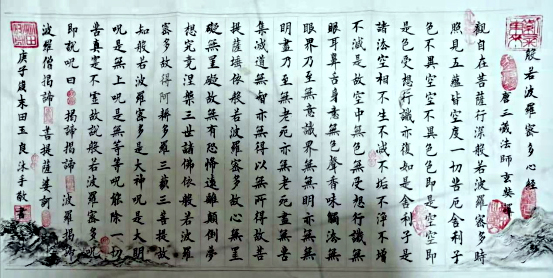 般若波羅蜜多心經
唐三藏法師玄奘譯
觀自在菩薩行深般若波羅蜜多時
照見五蘊皆空度一切苦厄舍利子
色不異空空不異色色即是空空即
是色受想行識亦復如是舍利子是
諸法空相不生不滅不垢不淨不增
不減是故空中無色無受想行識無
眼耳鼻舌身意無色聲香味觸法無
眼界乃至無意識界無無明亦無無
明盡乃至無老死亦無老死盡無苦
集滅道無智亦無得以無所得故菩
提薩埵依般若波羅蜜多故心無罣
礙無罣礙故無有恐怖遠離顛倒夢
想究竟涅槃三世諸佛依般若波羅
蜜多故得阿耨多羅三藐三菩提故
知般若波羅蜜多是大神呪是大明
呪是無上呪是無等等呪能除一切
苦真實不虛故說般若波羅蜜多呪
即說呪曰 揭諦揭諦 波羅揭諦
波羅僧揭諦 菩提薩婆訶
庚子夏末田玉良沐手敬書